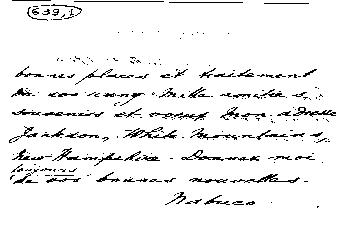 639, I
bonnes places et traitement
de vos rang. Mille amitiés,
souvenirs et voeux. Mon adresse
Jackson, White Mountains,
New Hampshire. Donnez moi
toujours
de vos bonnes nouvelles.
Nabuco